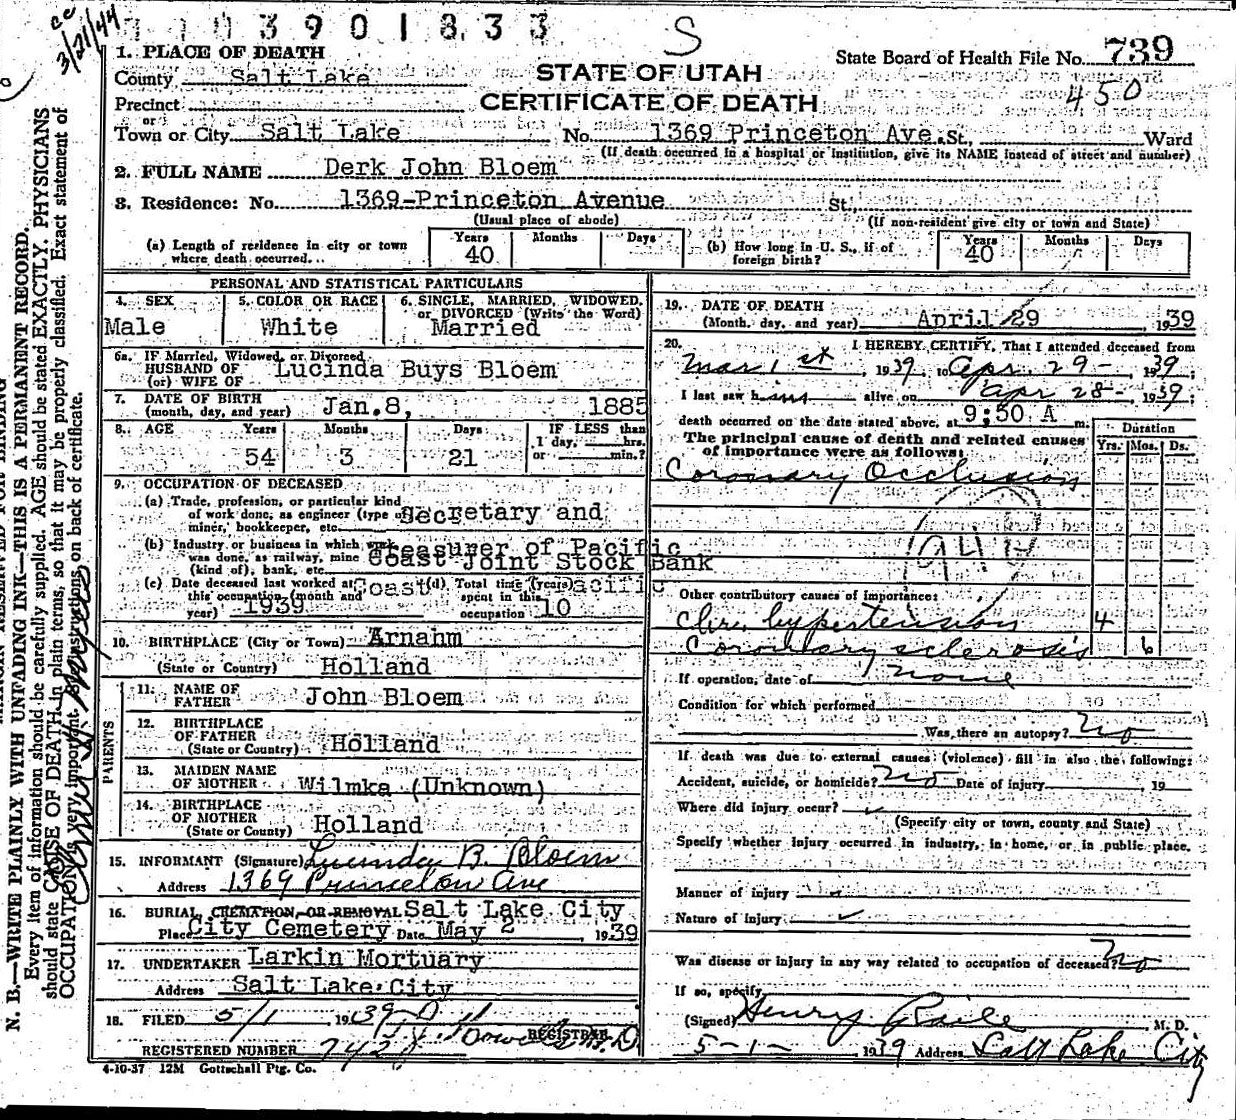 cc
3/21/44
1103901833
S
1. PLACE OF DEATH
State Board of Health File No. 739
County Salt Lake
STATE OF UTAH
450
Precinct
CERTIFICATE OF DEATH
or
Town or City Salt Lake No. 1369 Princeton Ave. St., Ward
(If death occurred in a hospital or institution, give its NAME instead of street and number)
2. FULL NAME Derk John Bloem
3. Residence: No. 1369-Princeton Avenue St.
(Usual place of abode) (If non-resident give city or town and State)
(a) Length of residence in city or town where death occurred... Years 40 Months Days
(b) How long in U. S., if of foreign birth? Years 40 Months Days
PERSONAL AND STATISTICAL PARTICULARS
4. SEX Male
5. COLOR OR RACE White
6. SINGLE, MARRIED, WIDOWED, or DIVORCED (Write the Word) Married
6a. IF Married, Widowed, or Divorced
HUSBAND OF (or) WIFE OF Lucinda Buys Bloem
7. DATE OF BIRTH (month, day, and year) Jan. 8, 1885
8. AGE Years 54 Months 3 Days 21 IF LESS than 1 day, hrs. or min.?
9. OCCUPATION OF DECEASED
(a) Trade, profession, or particular kind of work done, as engineer (type of miner, bookkeeper, etc. Secretary and
(b) Industry or business in which work was done, as railway, mine (kind of), bank, etc. Treasurer of Pacific
Coast Joint Stock Bank
(c) Date deceased last worked at this occupation (month and year) 1939
Coast Pacific
(d) Total time (years) spent in this occupation 10
10. BIRTHPLACE (City or Town) Arnahm
(State or Country) Holland
PARENTS
11. NAME OF FATHER John Bloem
12. BIRTHPLACE OF FATHER (State or Country) Holland
13. MAIDEN NAME OF MOTHER Wilmka (Unknown)
14. BIRTHPLACE OF MOTHER (State or County) Holland
15. INFORMANT (Signature) Lucinda B. Bloem
Address 1369 Princeton Ave
16. BURIAL, CREMATION, OR REMOVAL Salt Lake City
Place City Cemetery Date May 2, 1939
17. UNDERTAKER Larkin Mortuary
Address Salt Lake City
18. FILED 5/1, 1939
REGISTRAR
REGISTERED NUMBER 742
4-10-37 12M Gottschall Ptg. Co.
19. DATE OF DEATH
(Month, day, and year) April 29, 1939
20. I HEREBY CERTIFY, That I attended deceased from
Mar 1st, 1939, to Apr. 29-, 1939;
I last saw him alive on Apr 28-, 1939;
death occurred on the date stated above, at 9:50 A m.
The principal cause of death and related causes of importance were as follows:
Duration
Yrs. Mos. Ds.
Coronary Occlusion
94b
Other contributory causes of importance:
Chr. hypertension 4
Coronary sclerosis 6
If operation, date of None
Condition for which performed
Was there an autopsy? No
If death was due to external causes (violence) fill in also the following:
Accident, suicide, or homicide? No Date of injury, 19
Where did injury occur?
(Specify city or town, county and State)
Specify whether injury occurred in industry, in home, or in public place.
Manner of injury
Nature of Injury
Was disease or injury in any way related to occupation of deceased? No
If so, specify
(Signed) Henry Raile, M. D.
5-1-1939 Address Salt Lake City
N. B.—WRITE PLAINLY WITH UNFADING INK—THIS IS A PERMANENT RECORD.
Every item of information should be carefully supplied. AGE should be stated EXACTLY. PHYSICIANS
should state CAUSE OF DEATH in plain terms, so that it may be properly classified. Exact statement of
OCCUPATION is very important. Instructions on back of certificate.